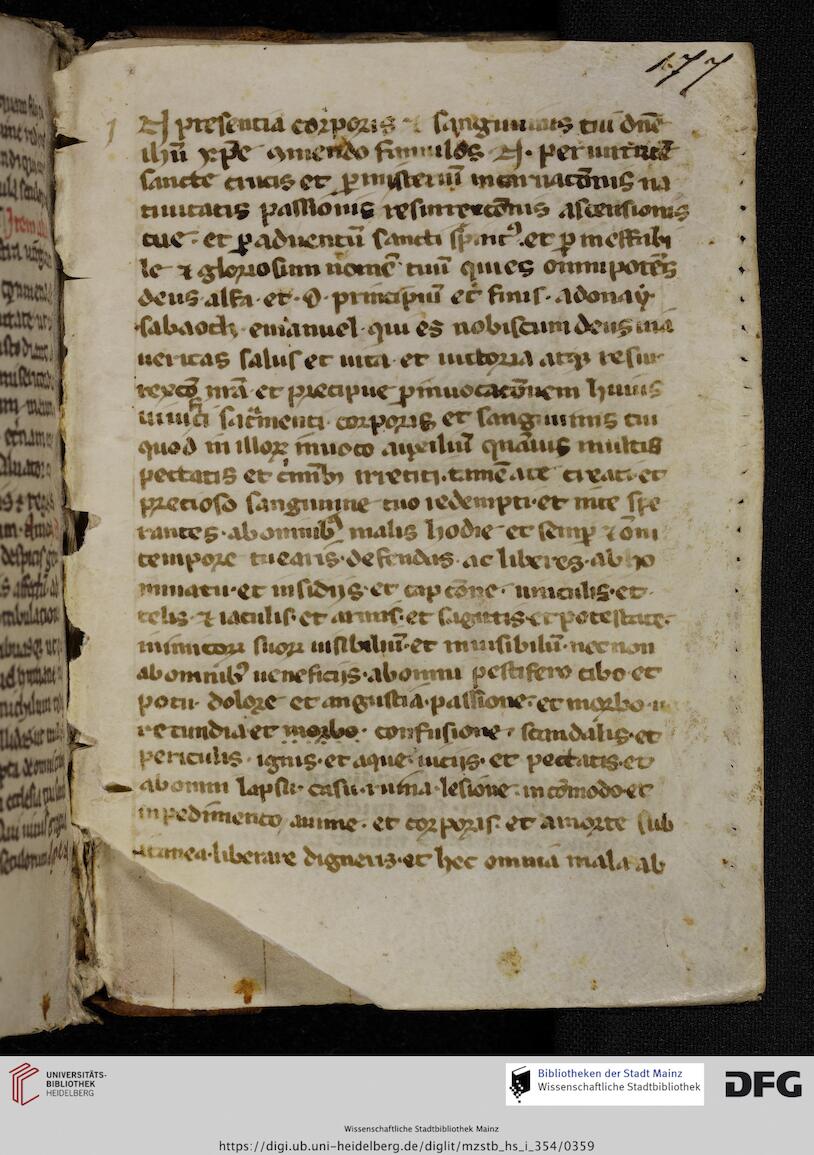 177
presentia corporis ⁊ sanguinis tui dn̄e
ihū xp̄e comendo famulos N. per uirtutē
sancte crucis et ꝑ misteriū incarnatōnis na
tiuitatis passionis resurrexcōnis ascensionis
tue · et ꝑ aduentū sancti sp̄s et ꝑ ineffabi
le ⁊ gloriosum nomē tuū qui es omnipotēs
deus · alfa · et · O · principiū et finis · adonay ·
sabaoth · emanuel · qui es nobiscum deus uia
ueritas salus et uita · et uictoria atqꝫ resur
rexcō nr̄a · et precipue ꝑ inuocatōnem huius
sac̄menti corporis et sanguinis tui
quod in illoꝝ inuoco auxiliū quāuis multis
peccatis et irretiti · tamē a te creati · et
precioso sanguinine tuo redempti · et in te spe
rantes · ab omnibꝰ malis hodie et semꝑ ⁊ om̄i
tempore tuearis · defendas · ac liberes · ab ho
et insidijs · et cap cōne · uinculis · et ·
telis · ⁊ iaculis · et armis · et sagittis · et potestate ·
inimicoꝝ suoꝝ uisibiliū · et inuisibiliū · necnon
ab omnibꝰ ueneficijs · ab omni pestifero cibo · et
potu · dolore et angustia · passione · et morbo ·
recundia et morbo · confusione · scandalis · et
periculis · ignis · et aque · uicijs · et peccatis · et
ab omni lapsu · casu · ruina · lesione · incōmodo · et
inpedimento anime · et corporis · et a morte sub
itanea · liberare digneris · et hec omnia mala ab
UNIVERSITÄTS-
BIBLIOTHEK
HEIDELBERG
Bibliotheken der Stadt Mainz
Wissenschaftliche Stadtbibliothek
DFG
Wissenschaftliche Stadtbibliothek Mainz
https://digi.ub.uni-heidelberg.de/diglit/mzstb_hs_i_354/0359